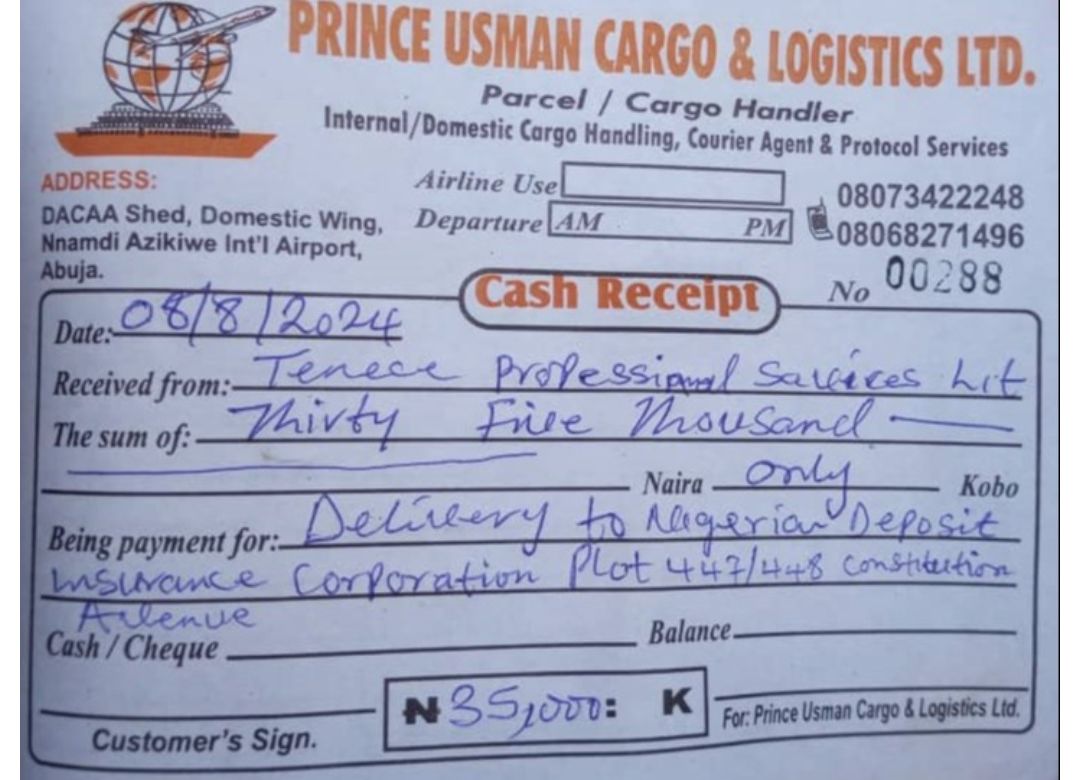 PRINCE USMAN CARGO & LOGISTICS LTD.
Parcel / Cargo Handler
Internal/Domestic Cargo Handling, Courier Agent & Protocol Services
ADDRESS:
DACAA Shed, Domestic Wing,
Nnamdi Azikiwe Int'l Airport,
Abuja.
Airline Use
Departure AM PM
08073422248
08068271496
Cash Receipt
No 00288
Date: 08/8/2024
Received from: Tenece Professional Services Lit
The sum of: Thirty Five Thousand
Naira only Kobo
Being payment for: Delivery to Nigerian Deposit
insurance Corporation Plot 447/448 constitution
Avenue
Cash / Cheque Balance
₦ 35,000: K
Customer's Sign.
For: Prince Usman Cargo & Logistics Ltd.